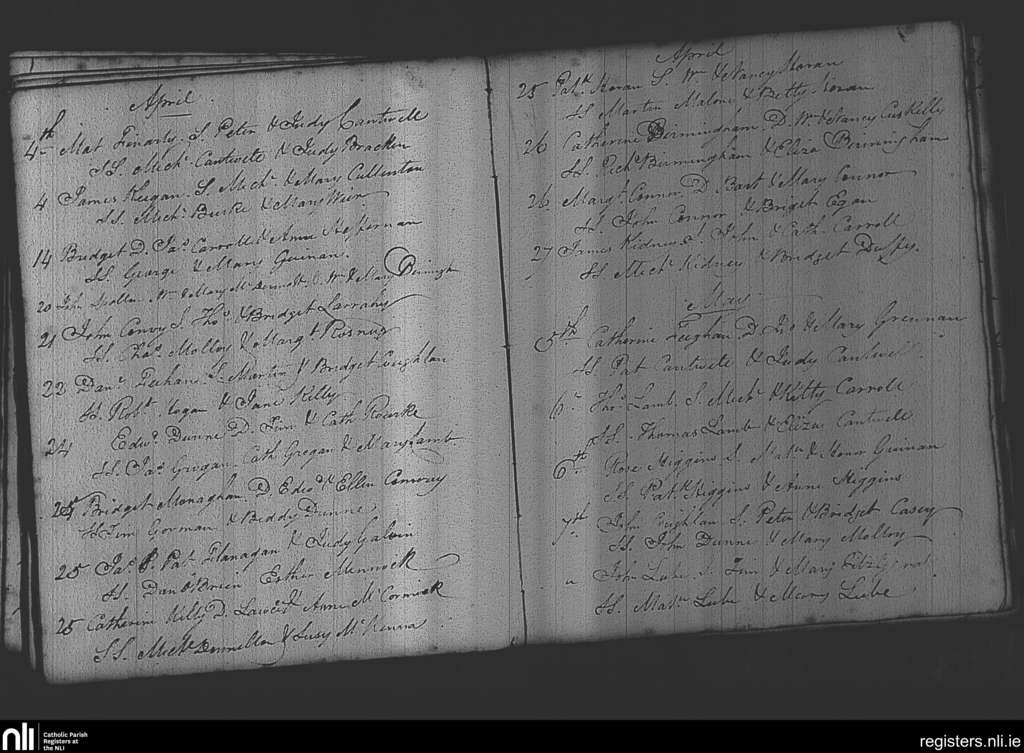 April
4th Mat Finarty S. Peter & Judy Cantwell
SS. Mich. Cantwell & Judy Bracken
4 James Keegan S. Mich. & Mary Culleton
SS. Mich. Burke & Mary Wier
14 Bridget D. Jas. Carroll & Anne Heffernan
SS. George & Mary Guinan
20 John Wm & Mary McDermott S. Wm & Mary
21 John Conroy S. Thos & Bridget Larrahy
SS. Chas. Molloy & Margt
22 Danl. S. Martin & Bridget Coughlan
SS. Robt. Hogan & Jane Kelly
24 Edwd. Dunne D. Tim & Cath Rourke
SS. Jas. Grogan Cath Grogan & Mary Lamb
25 Bridget Monaghan D. Edwd & Ellen Conway
SS Tim Gorman & Biddy Dunne
25 Jas. P. Pat Flanagan & Judy Galvin
SS. Danl O'Brien Esther Minnock
25 Catherine Kelly D. & Anne McCormick
SS. Michl Donnellan & Susy McKenna
April
25 Patk Horan S. Wm & Nancy Moran
SS Martin Malone & Betty Horan
26 Catherine Birmingham D. Wm & Nancy Cuskelly
SS. Richd Birmingham & Eliza Birmingham
26 Margt Connor D. Bart & Mary Connor
SS. John Connor & Briget Egan
27 James Kidney S. John & Cath. Carroll
SS Michl Kidney & Bridget Duffy
May
5th Catherine Feighan D. Jno & Mary Grennan
SS Pat Cantwell & Judy Cantwell
6th Thos Lamb S. Michl & Kitty Carroll
SS. Thomas Lamb & Eliza Cantwell
6th Rose Higgins S. & Honor Guinan
SS. Patk Higgins & Anne Higgins
7th John Coughlan S. Peter & Bridget Casey
SS. John Dunne & Mary Molloy
" John Lube S. & Mary Fitzgerald
SS. Lube & Mary Lube
nli
Catholic Parish
Registers at
the NLI
registers.nli.ie